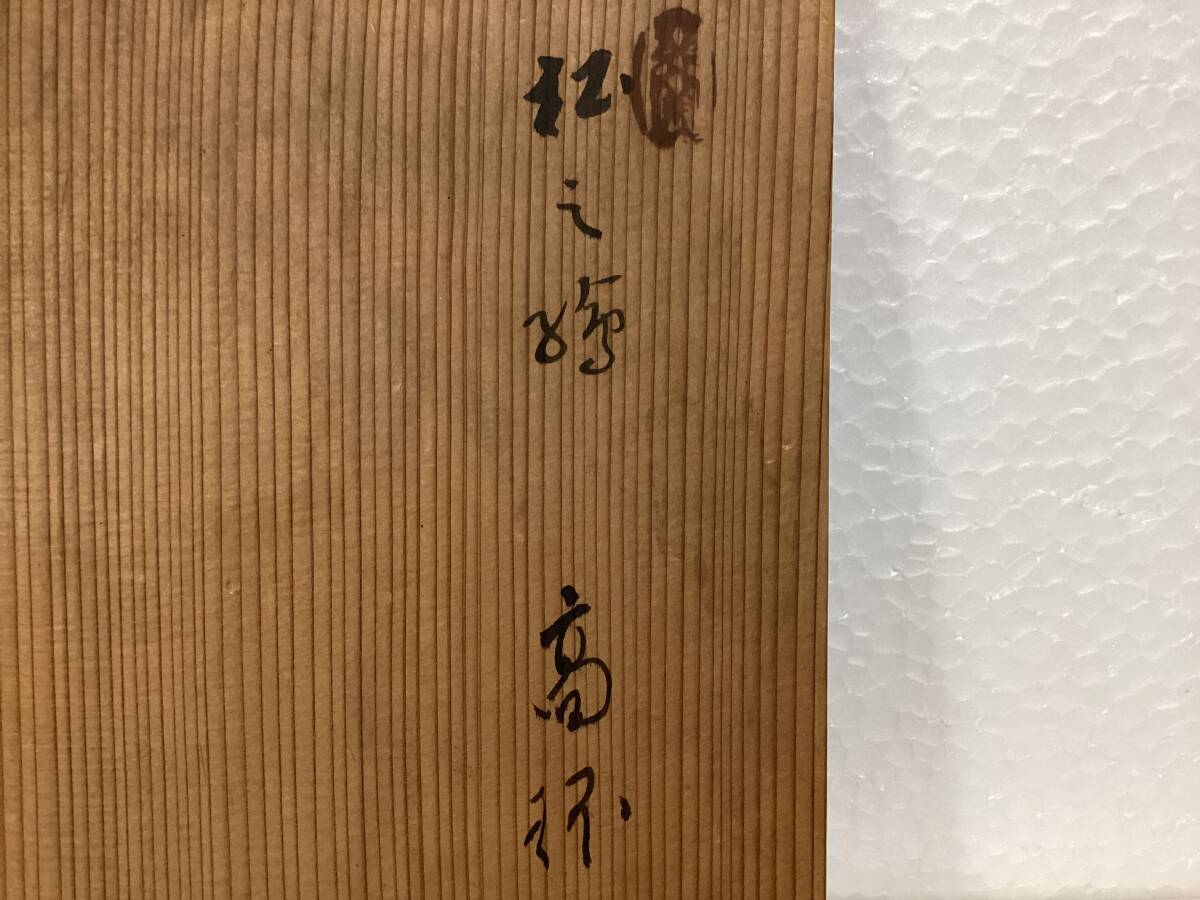 松之繪 高杯